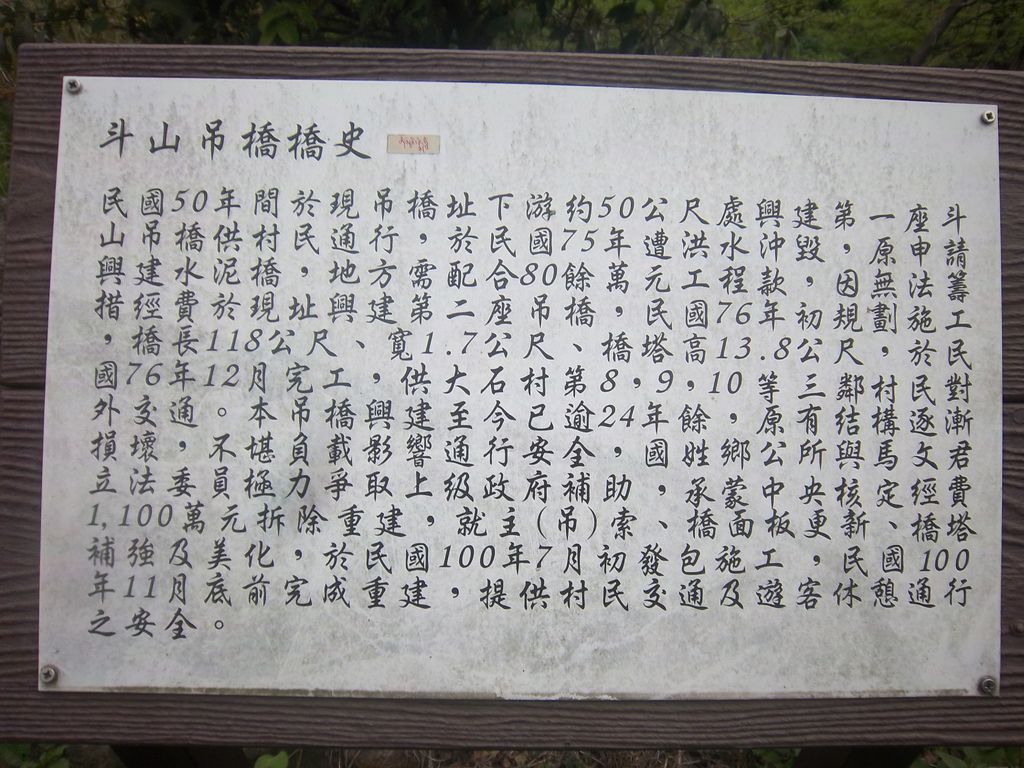 斗山吊橋橋史
民國50年間於現吊橋址下游約50公尺處興建第一座斗
山吊橋供村民通行，於民國75年遭洪水沖毀，原申請
興建水泥橋，地方需配合80餘萬元工程款，因無法籌
措，經費於現址興建第二座吊橋，民國76年初規劃施工
，橋長118公尺、寬1.7公尺、橋塔高13.8公尺，於民
國76年12月完工，供大石村第8，9，10，等三鄰村民對
外交通。本吊橋興建至今已逾24年餘，原有結構逐漸
損壞，不堪負載影響通行安全，國姓鄉公所與馬文君
立法委員極力爭取上級政府補助，承蒙中央核定經費
1,100萬元拆除重建，就主(吊)索、橋面板更新、橋塔
補強及美化，於民國100年7月初發包施工，民國100
年11月底前完成重建，提供村民交通及遊客休憩通行
之安全。